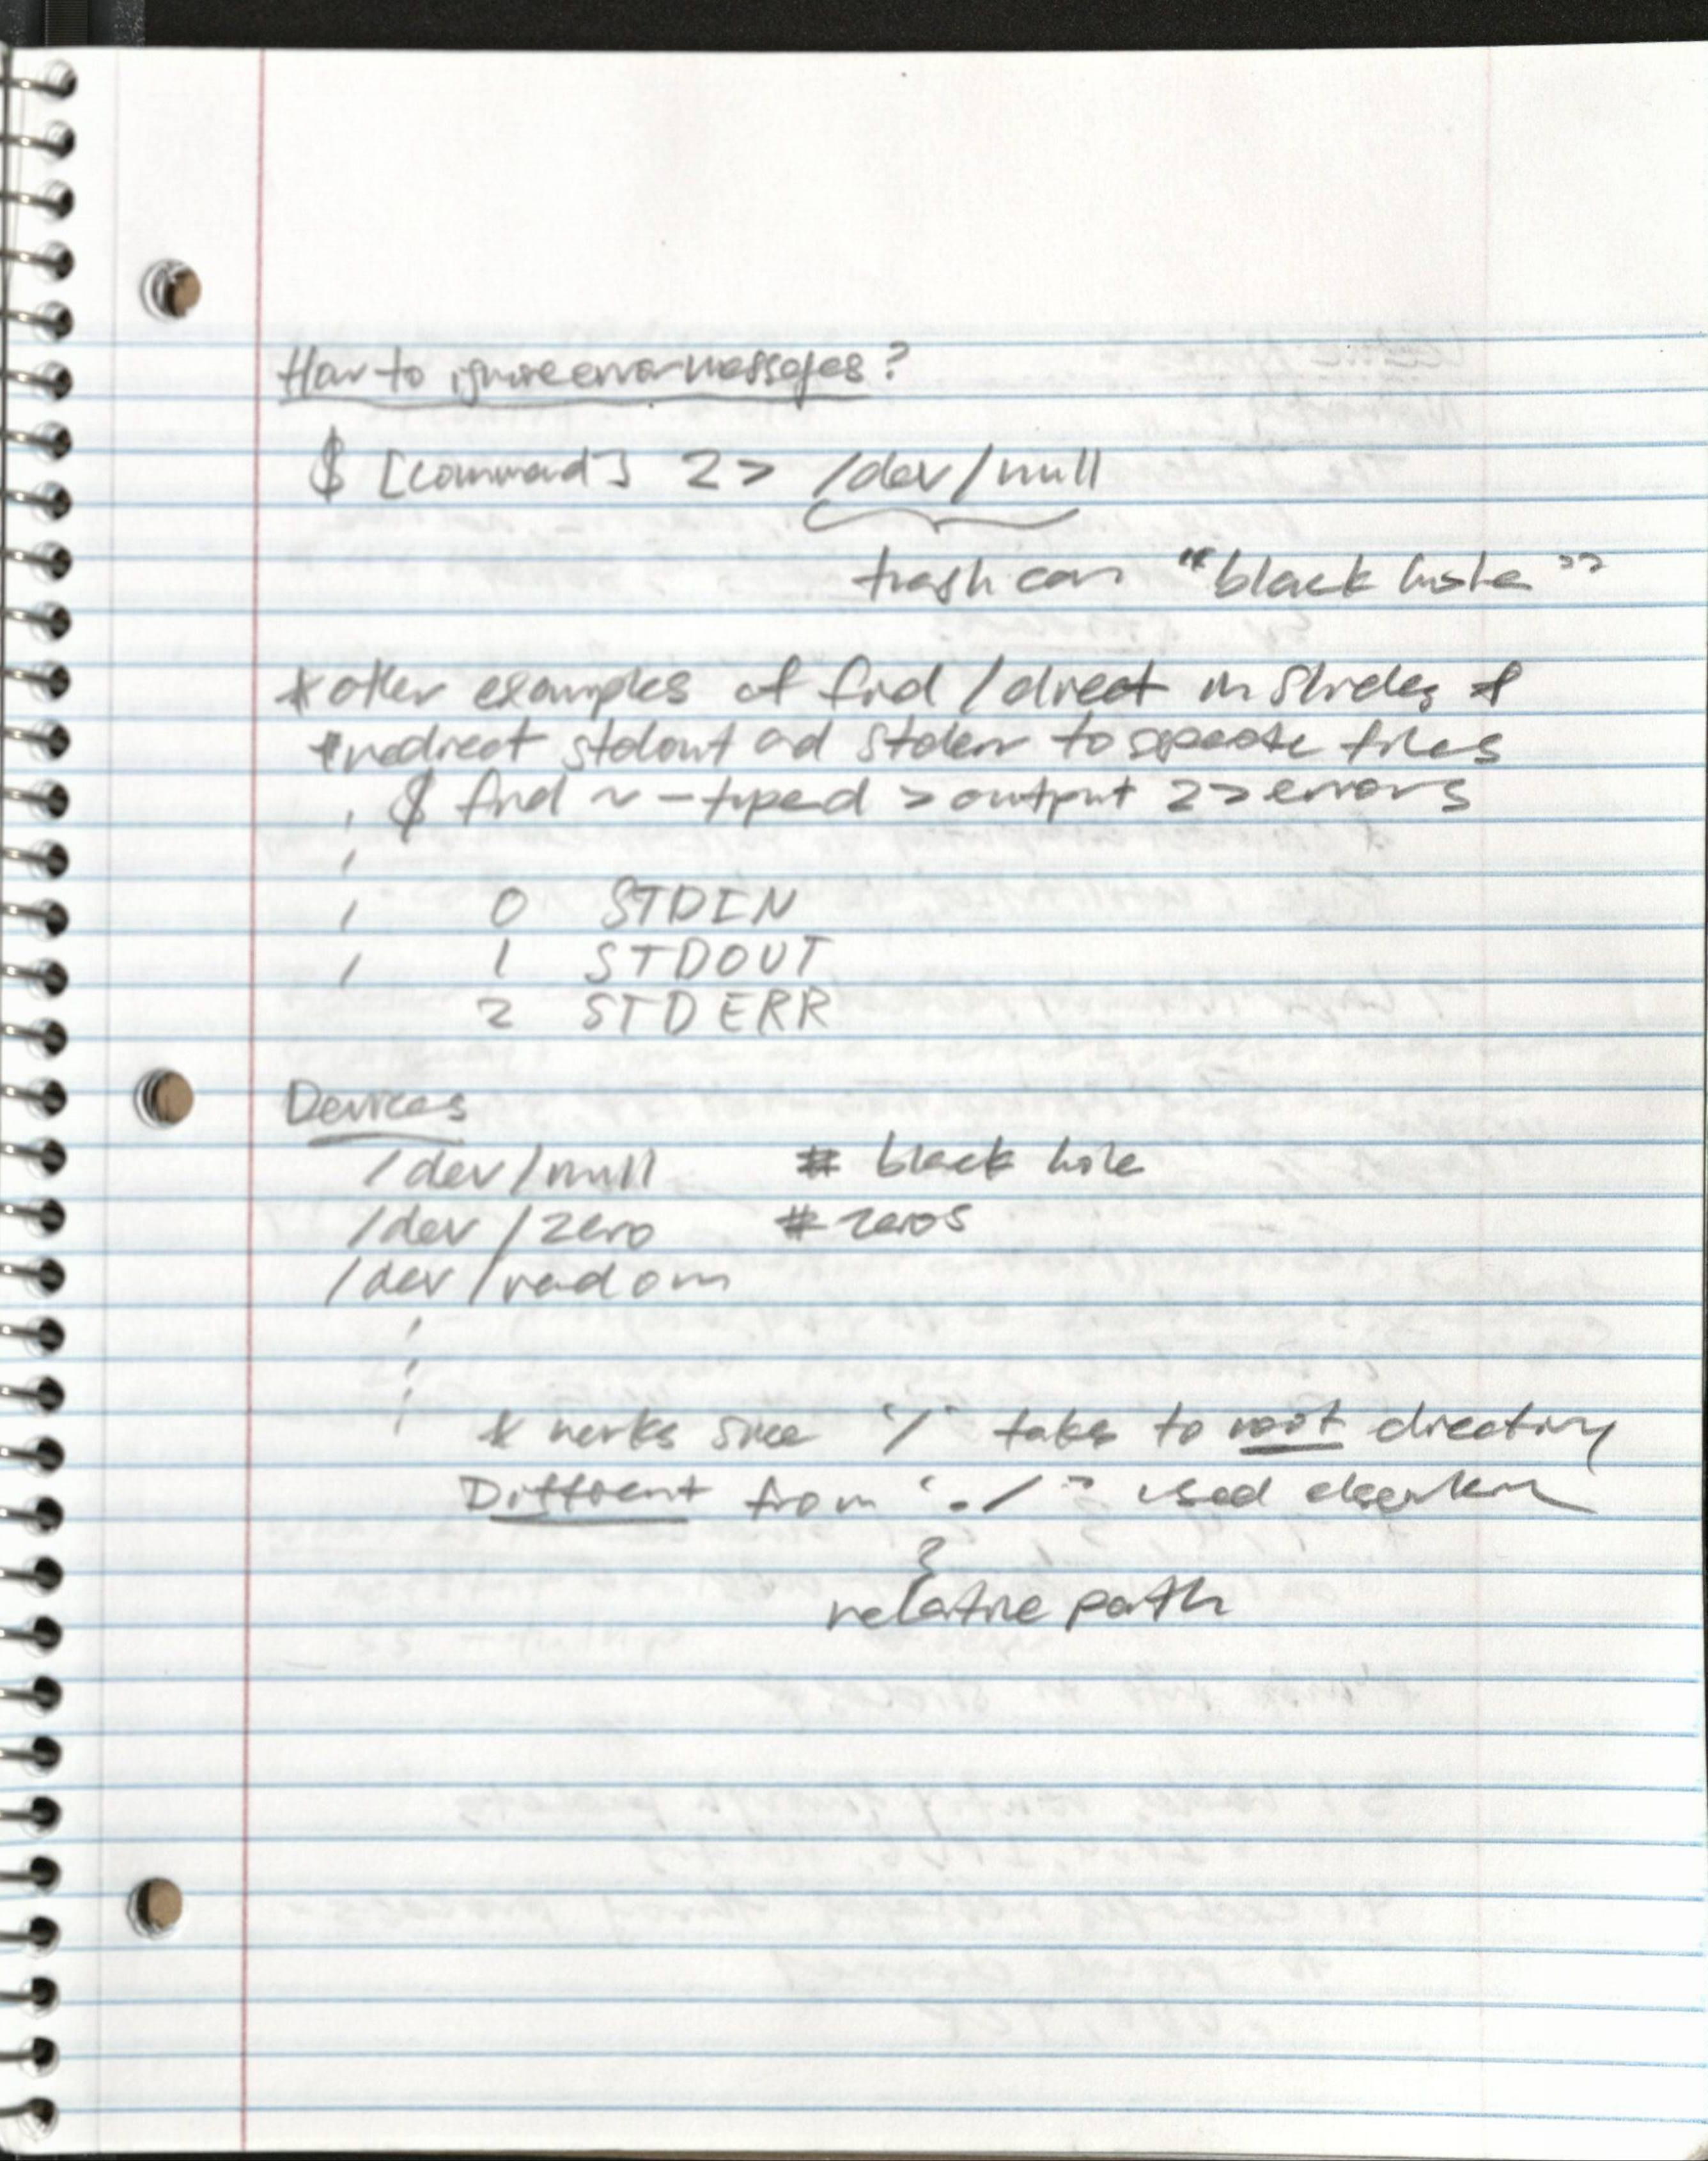 How to ignore error messages?
$ [command] 2> /dev/null
trash can "black hole"
* other examples of find / direct in slides *
* redirect stdout and stderr to separate files
$ find ~ -type d > output 2> errors
0 STDIN
1 STDOUT
2 STDERR
Devices
/dev/null # black hole
/dev/zero # zeros
/dev/random
* works since '/' takes to root directory
Different from './' used elsewhere
relative path